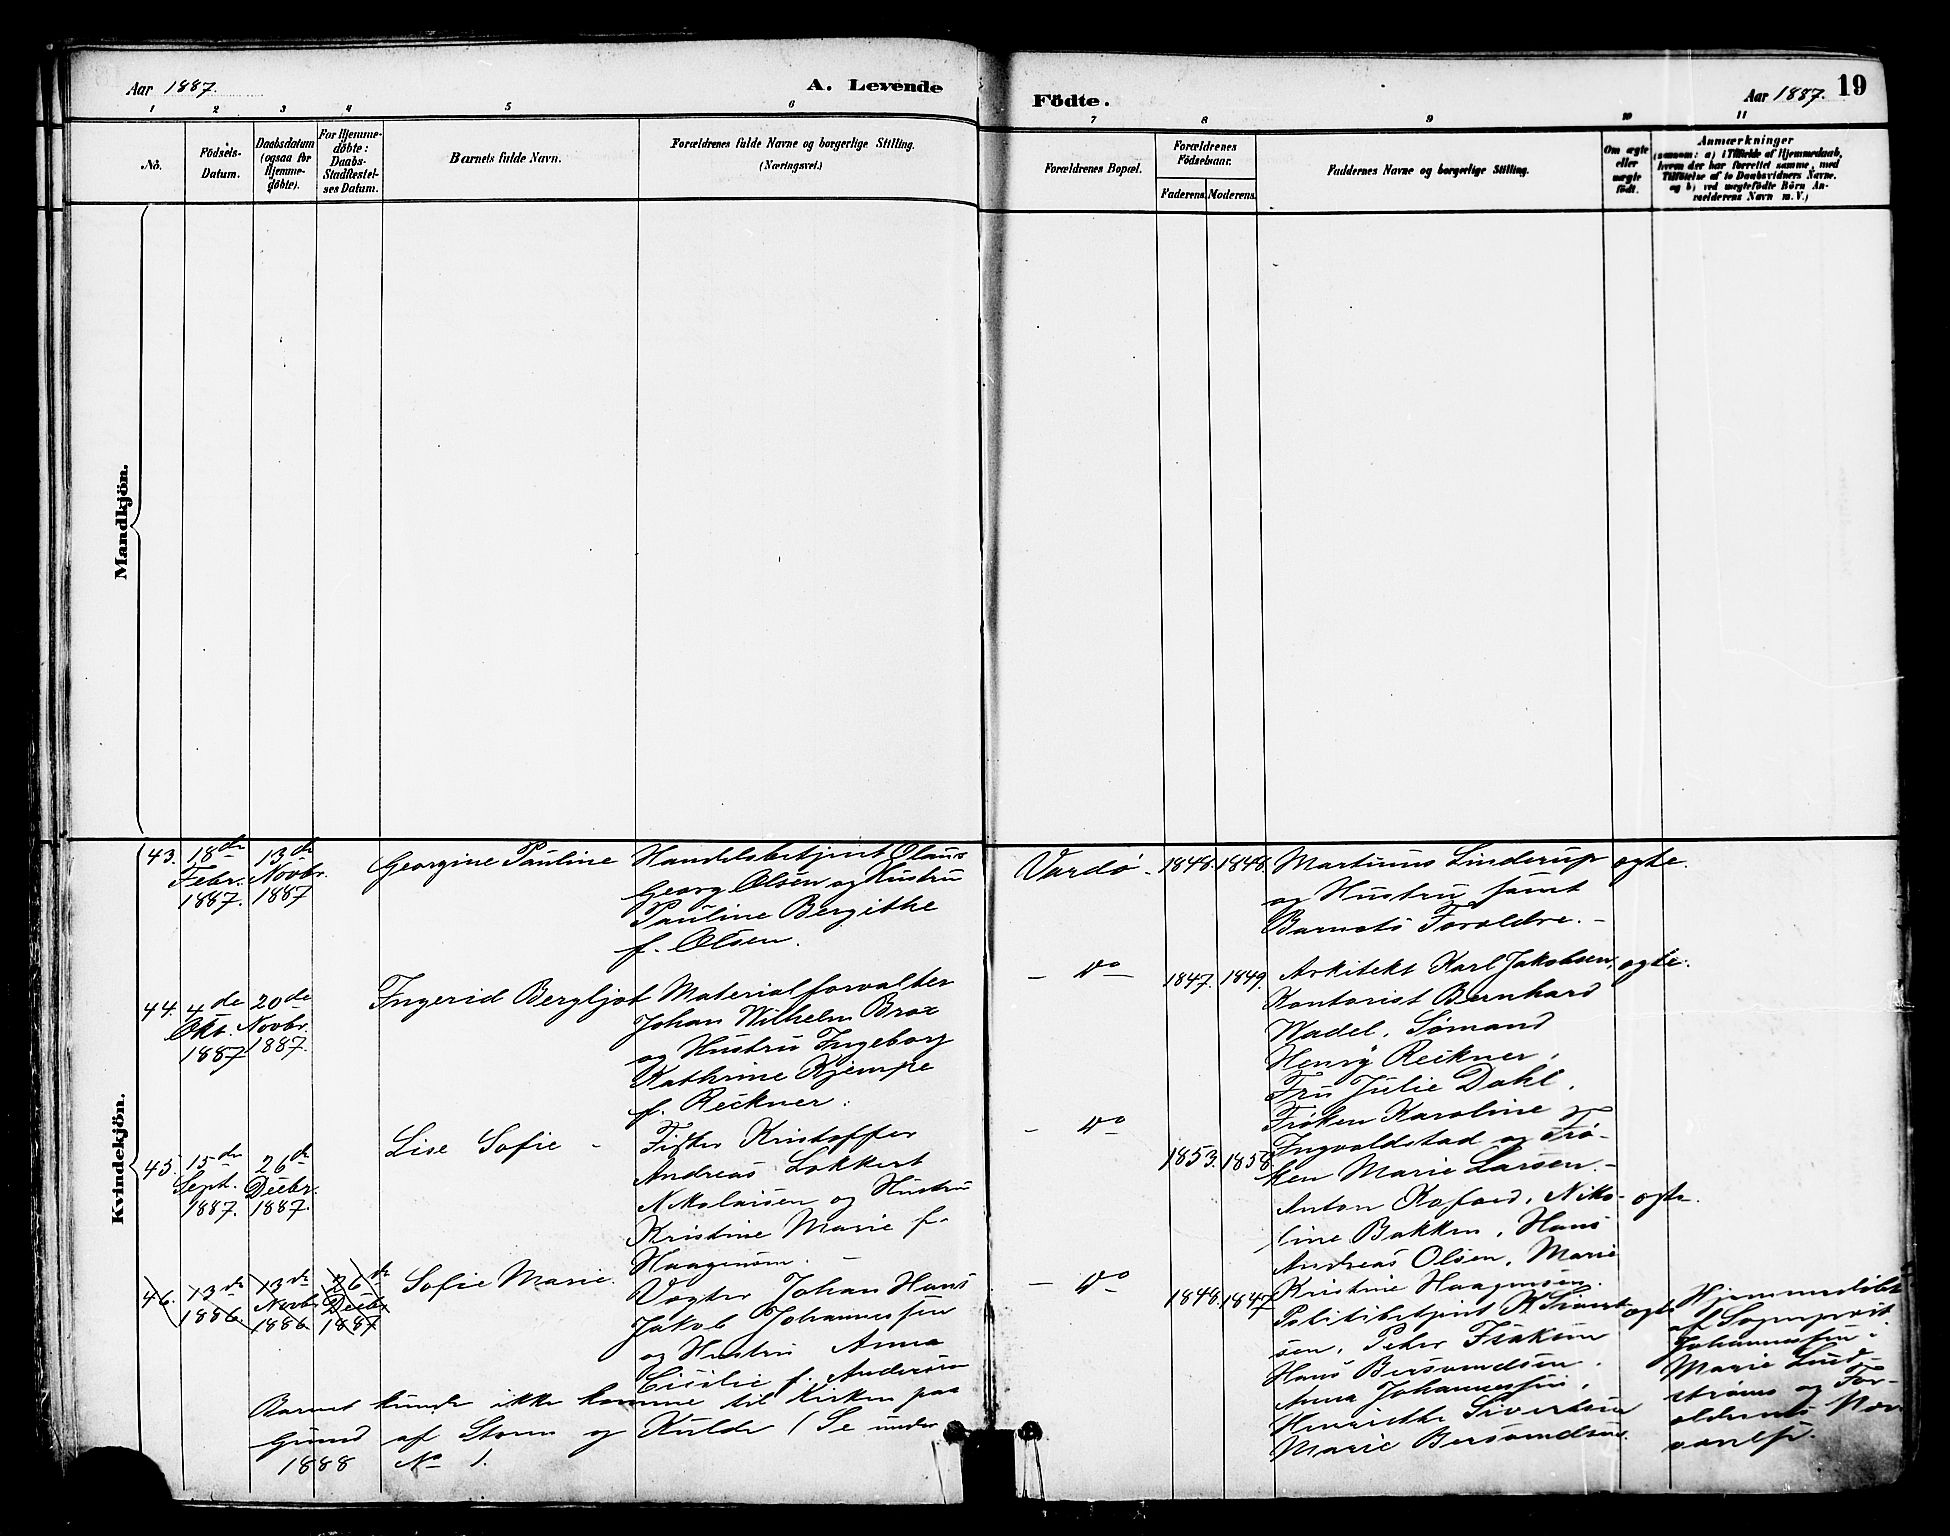 Aar 1887.
A. Levende
Födte.
Aar 1887.
19
1 2 3 4 5 6
7 8 9 10 11
No.
Födsels-
Datum.
Daabsdatum
(ogsaa for
Hjemme-
døbte).
For Hjemme-
døbte:
Daabs-
Stadfæstel-
ses Datum.
Barnets fulde Navn.
Forældrenes fulde Navne og borgerlige Stilling.
(Næringsvei.)
Forældrenes Bopæl.
Forældrenes
Födselsaar.
Faderens.
Moderens.
Faddernes Navne og borgerlige Stilling.
Om ægte
eller
uægte
födt.
Anmærkninger
(saasom: a) i Tilfælde af Hjemmedaab,
hvem der har forrettet samme, med
Tilföielse af to Daabsvidners Navne.
og b) ved uægtefödte Börn An-
melderens Navn m. V.)
Mandkjön.
Kvindekjön.
43.
18de
Febr.
1887.
13de
Novbr.
1887
Georgine Pauline
Handelsbetjent Olaus
Georg Olsen og Hustru
Pauline Bergithe
f. Olsen.
Vardö
1848. 1848.
Martinus Linderup
og Hustru samt
Barnets Forældre.
ægte.
44.
4de
Okt.
1887
20de
Novbr.
1887.
Ingerid Bergljot
Materialforvalter
Johan Wilhelm Brox
og Hustru Ingeborg
Kathrine Kjempe
f. Reikner.
- Do
1847. 1849.
Arkitekt Karl Jakobsen,
Kontorist Bernhard
Wadel, Sømand
Henry Reikner,
Fru Julie Dahl,
Frøken Karoline
Ingvaldstad og Frø-
ken Marie Larsen.
ægte.
45.
15de
Sept.
1887.
26de
Decbr.
1887.
Lise Sofie
Fisker Kristoffer
Andreas Lokkert
Nikolaisen og Hustru
Kristine Marie f.
Haagensen.
- Do
1853. 1858
Anton Kofoed, Niko-
line Bakken, Hans
Andreas Olsen, Marie
Kristine Haagensen.
ægte.
46.
13de
1886.
13de
Novbr.
1886
26de
Decbr.
1887
Sofie Marie.
Vægter Johan Hans
Jakob Johannessen
og Hustru Anna
Cicilie f. Andersen
- Do
1848. 1847
Politibetjent K Sivert-
sen, Peter Isaksen
Hans Berswendsen,
Anna Johannessen,
Henriette Sivertsen
Marie Berswendsen.
ægte
Hjemmedöbt
af Sogneprest
Johannessen i
Marie Lind-
strøms og For-
ældrenes Nær-
værelse.
Barnet kunde ikke komme til Kirken paa
Grund af Storm og Kulde (Se under
1888 No 1.